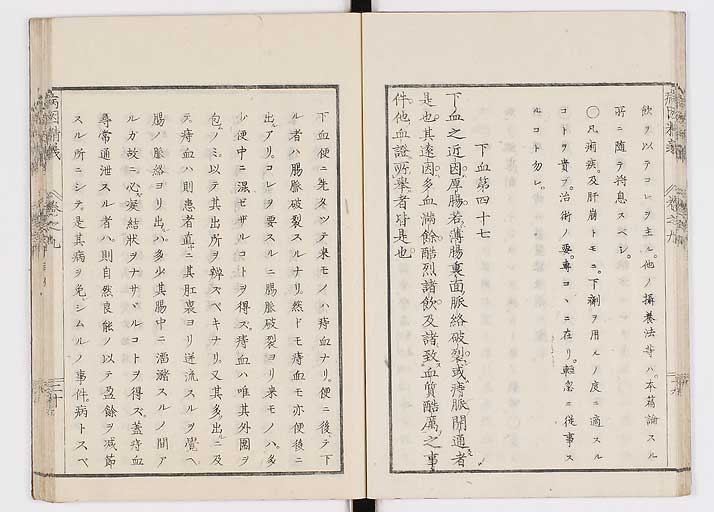 飲ヲ以テコレヲ主ル。他ノ攝養法等ハ。本篇論スル
所ニ随テ将息スベシ。
〇凡痢疾。及肝崩トモニ。下劑ヲ用ルノ度ニ適スル
コトヲ貴ブ。治術ノ要。專コヽニ在リ。輕忽ニ従事ス
ルコト勿レ。
下血第四十七
下血之近因。厚腸若薄腸裏面脈絡破裂。或痔脈開通者
是也。其遠因。多血滿餘。酷烈諸飲。及諸致血質酷厲之事
件。他血證所擧者皆是也。
病因精義
卷之九
下血便ニ先タツテ来モノハ痔血ナリ。便ニ後テ下
ル者ハ腸脈破裂スルナリ然ドモ痔血モ亦便後ニ
出。アリ。コレヲ要スルニ腸脈破裂ヨリ来モノハ。多
少便中ニ混ゼザルコトヲ得ズ。痔血ハ唯其外圍ヲ
包ノミ。以テ其出所ヲ辨スベキナリ。又其多出ニ及
テ。痔血ハ則患者直ニ其肛裏ヨリ逆流スルヲ覺ヘ
腸ノ脈絡ヨリ出ハ。多少其腸中ニ瀦スルノ間ア
ルガ故ニ。必凝結状ヲナサヾルコトヲ得ズ。蓋痔血
尋常通泄スル者ハ。則自然良能ノ以テ盈餘ヲ減節
スル所ニシテ。是其病ヲ免シムルノ事件。病トスベ
病因精義
卷之九
二十